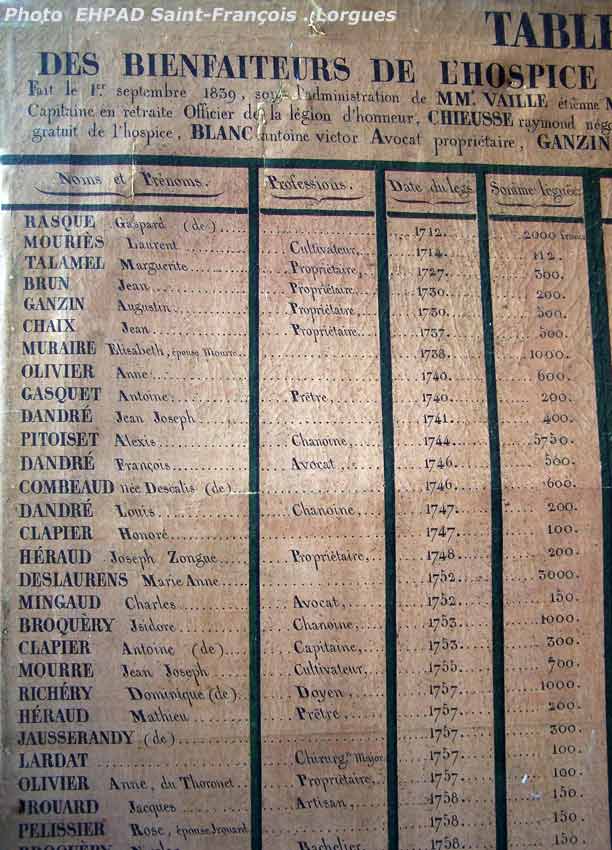 Photo EHPAD Saint-François . Lorgues
TABLE
DES BIENFAITEURS DE L'HOSPICE
Fait le 1er septembre 1839, sous l'administration de MMrs VAILLE étienne
Capitaine en retraite Officier de la légion d'honneur, CHIEUSSE raymond négo
gratuit de l'hospice, BLANC antoine victor Avocat propriétaire, GANZIN
Noms et Prénoms. Professions. Date du legs. Somme léguée.
RASQUE Gaspard (de) 1712. 2000 francs
MOURIÈS Laurent Cultivateur, 1714. 112.
TALAMEL Marguerite Propriétaire, 1727. 300.
BRUN Jean Propriétaire 1730. 200.
GANZIN Augustin Propriétaire 1730. 500.
CHAIX Jean Propriétaire 1737. 500.
MURAIRE Elisabeth, épouse Mourre 1738. 1000.
OLIVIER Anne 1740. 600.
GASQUET Antoine Prêtre, 1740. 200.
DANDRÉ Jean Joseph 1741. 400.
PITOISET Alexis Chanoine, 1744. 5750.
DANDRÉ François Avocat, 1746. 500.
COMBEAUD née Descalis (de) 1746. 600.
DANDRÉ Louis Chanoine, 1747. 200.
CLAPIER Honoré 1747. 100.
HÉRAUD Joseph Zongue Propriétaire, 1748. 200.
DESLAURENS Marie Anne 1752. 3000.
MINGAUD Charles Avocat, 1752. 150.
BROQUERY Isidore Chanoine, 1753. 1000.
CLAPIER Antoine (de) Capitaine, 1753. 300.
MOURRE Jean Joseph Cultivateur, 1755. 700.
RICHÉRY Dominique (de) Doyen, 1757. 1000.
HÉRAUD Mathieu Prêtre, 1757. 200.
JAUSSERANDY (de) 1757. 300.
LARDAT Chirurgn Major 1757. 100.
OLIVIER Anne, du Thoronet Propriétaire, 1757. 100.
JROUARD Jacques Artisan, 1758. 150.
PELISSIER Rose, épouse Jrouard 1758. 150.
BROQUÈRY Bachelier 1758. 150.